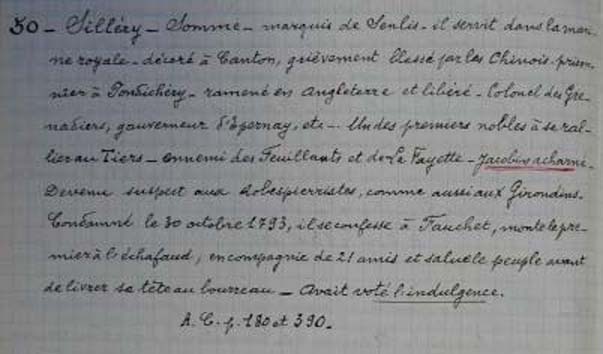 50 - Silléry - Somme - marquis de Senlis - il servit dans la mari-
ne royale - décoré à Canton, grièvement blessé par les Chinois - prison-
nier à Pondichéry - ramené en Angleterre et libéré - Colonel des Gre-
nadiers, gouverneur d'Epernay, etc - Un des premiers nobles à se ral-
lier au Tiers - ennemi des Feuillants et de La Fayette - Jacobin acharné -
Devenu suspect aux Robespierristes, comme aussi aux Girondins.
Condamné le 30 octobre 1793, il se confesse à Fauchet, monte le pre-
mier à l'échafaud, en compagnie de 21 amis et salue le peuple avant
de livrer sa tête au bourreau - Avait voté l'indulgence.
A. C. p. 180 et 390 -